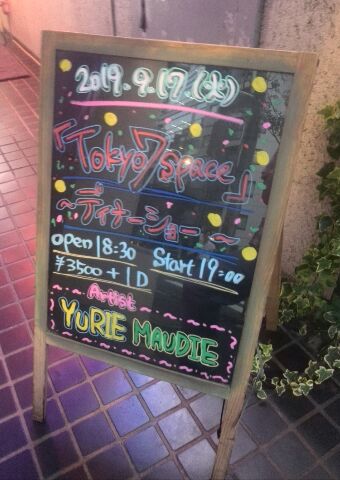 2019.9.17.(火)
「Tokyo 7 Space」
～ディナーショー～
open 18:30 Start 19:00
¥3500 + 1D
Artist
YURIE MAUDIE